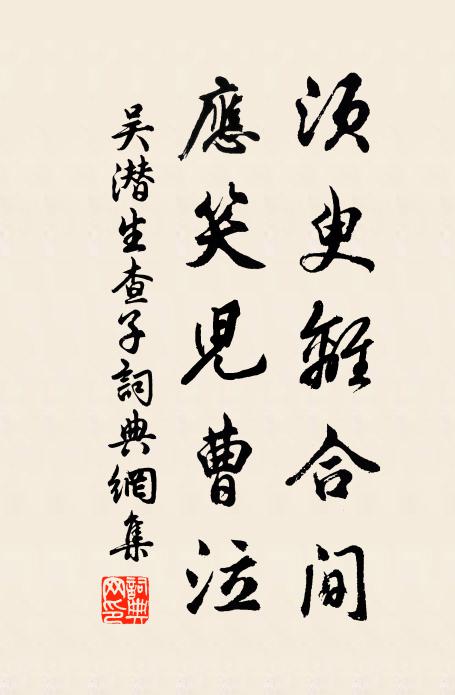 須臾離合間
應笑兒曹泣
吴潜生查子詞典網集
詞典网印